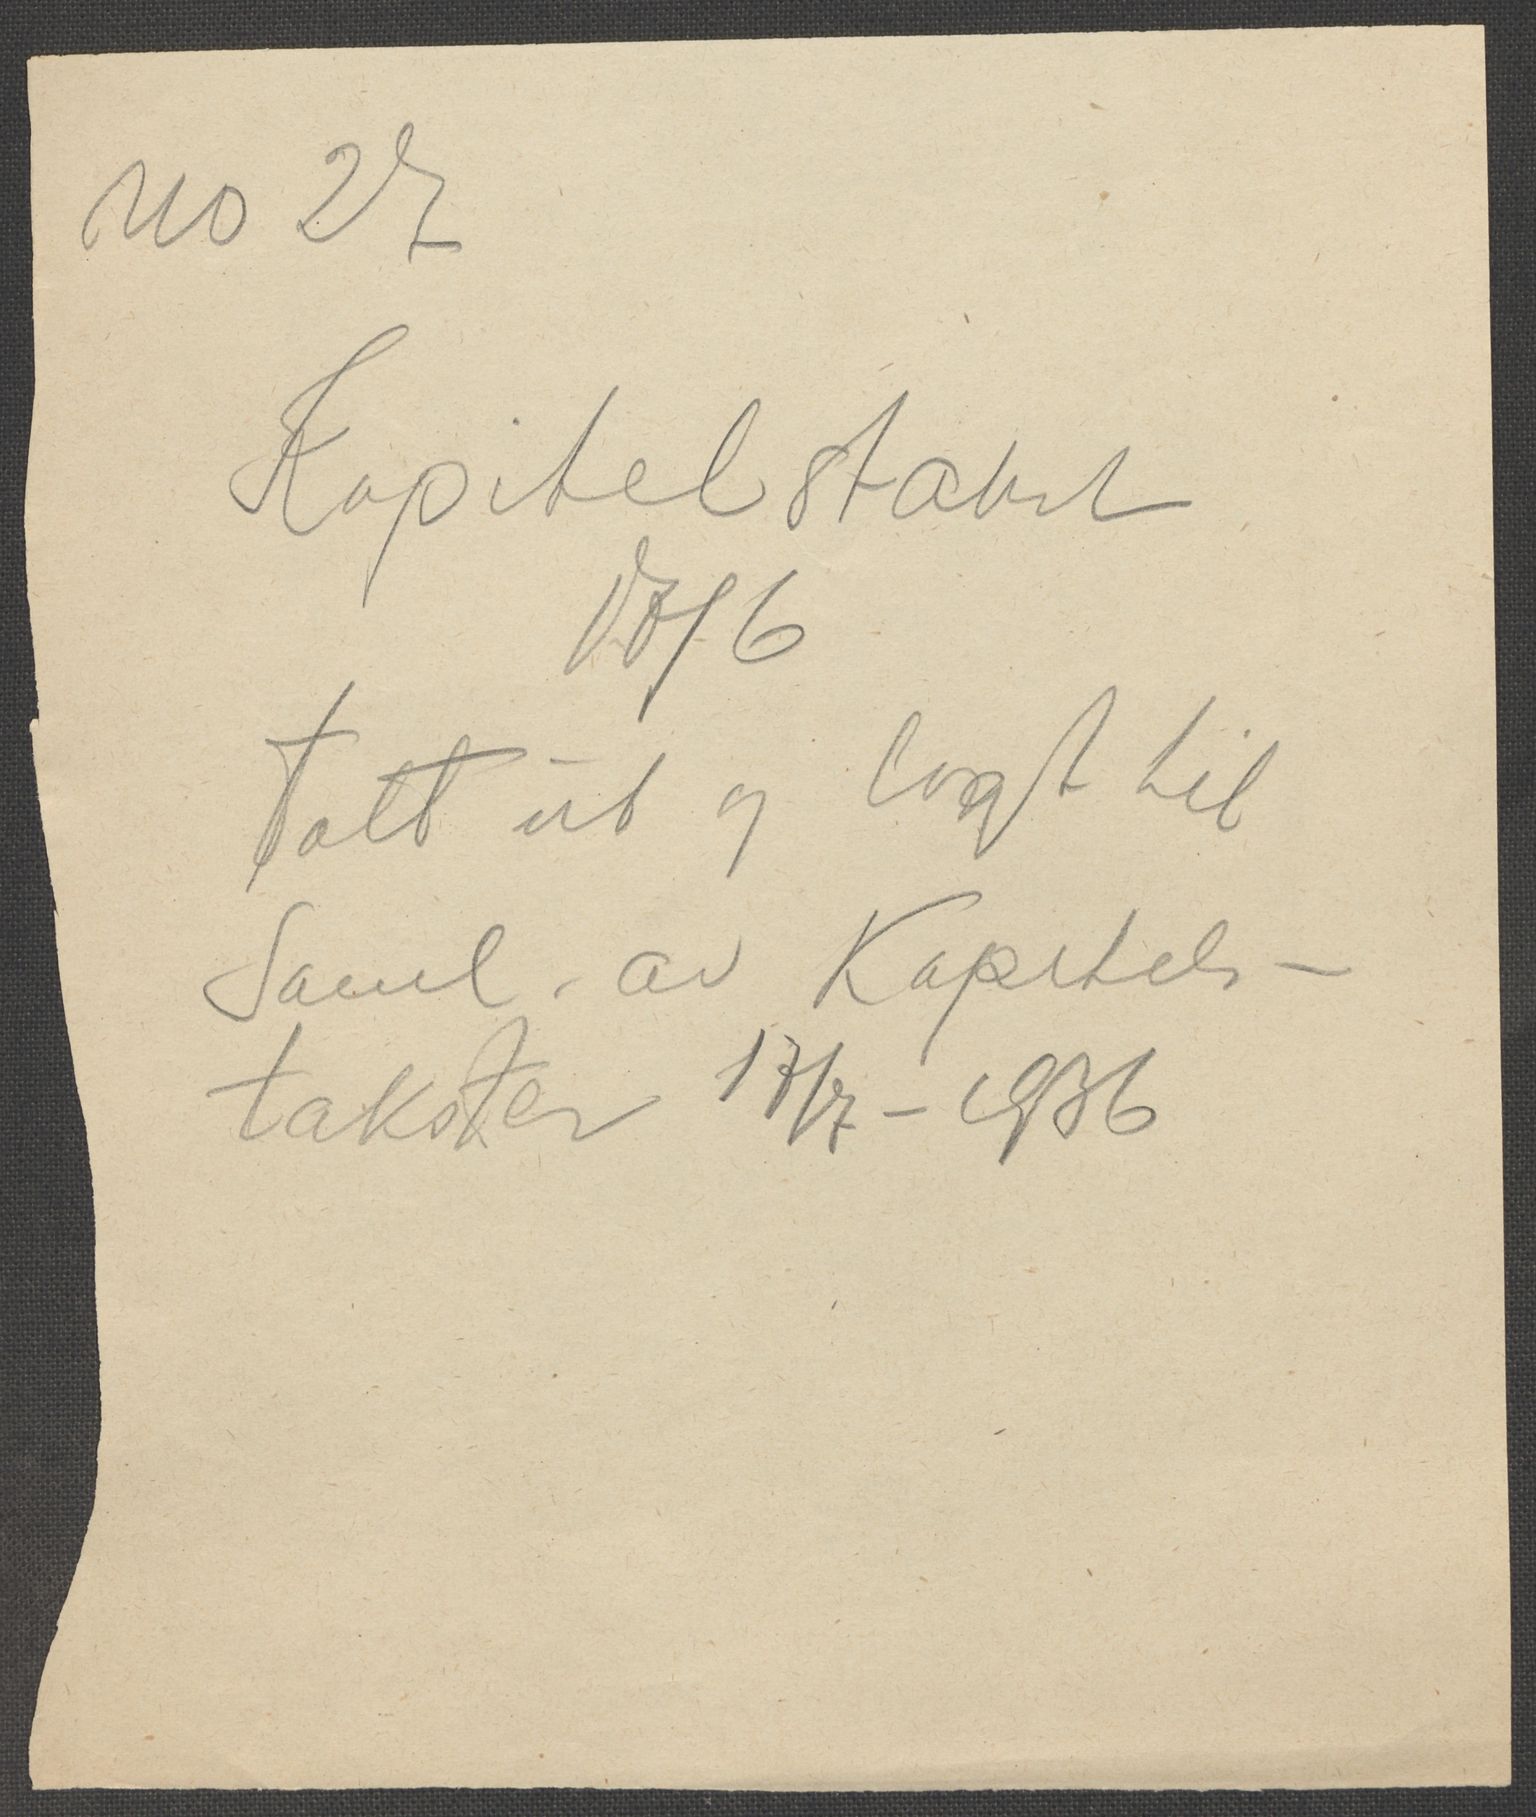 no 27
Kapitelstakst
1716
Tatt ut og lagt til
Saml. av Kapitels-
takster 17/7 - 1936